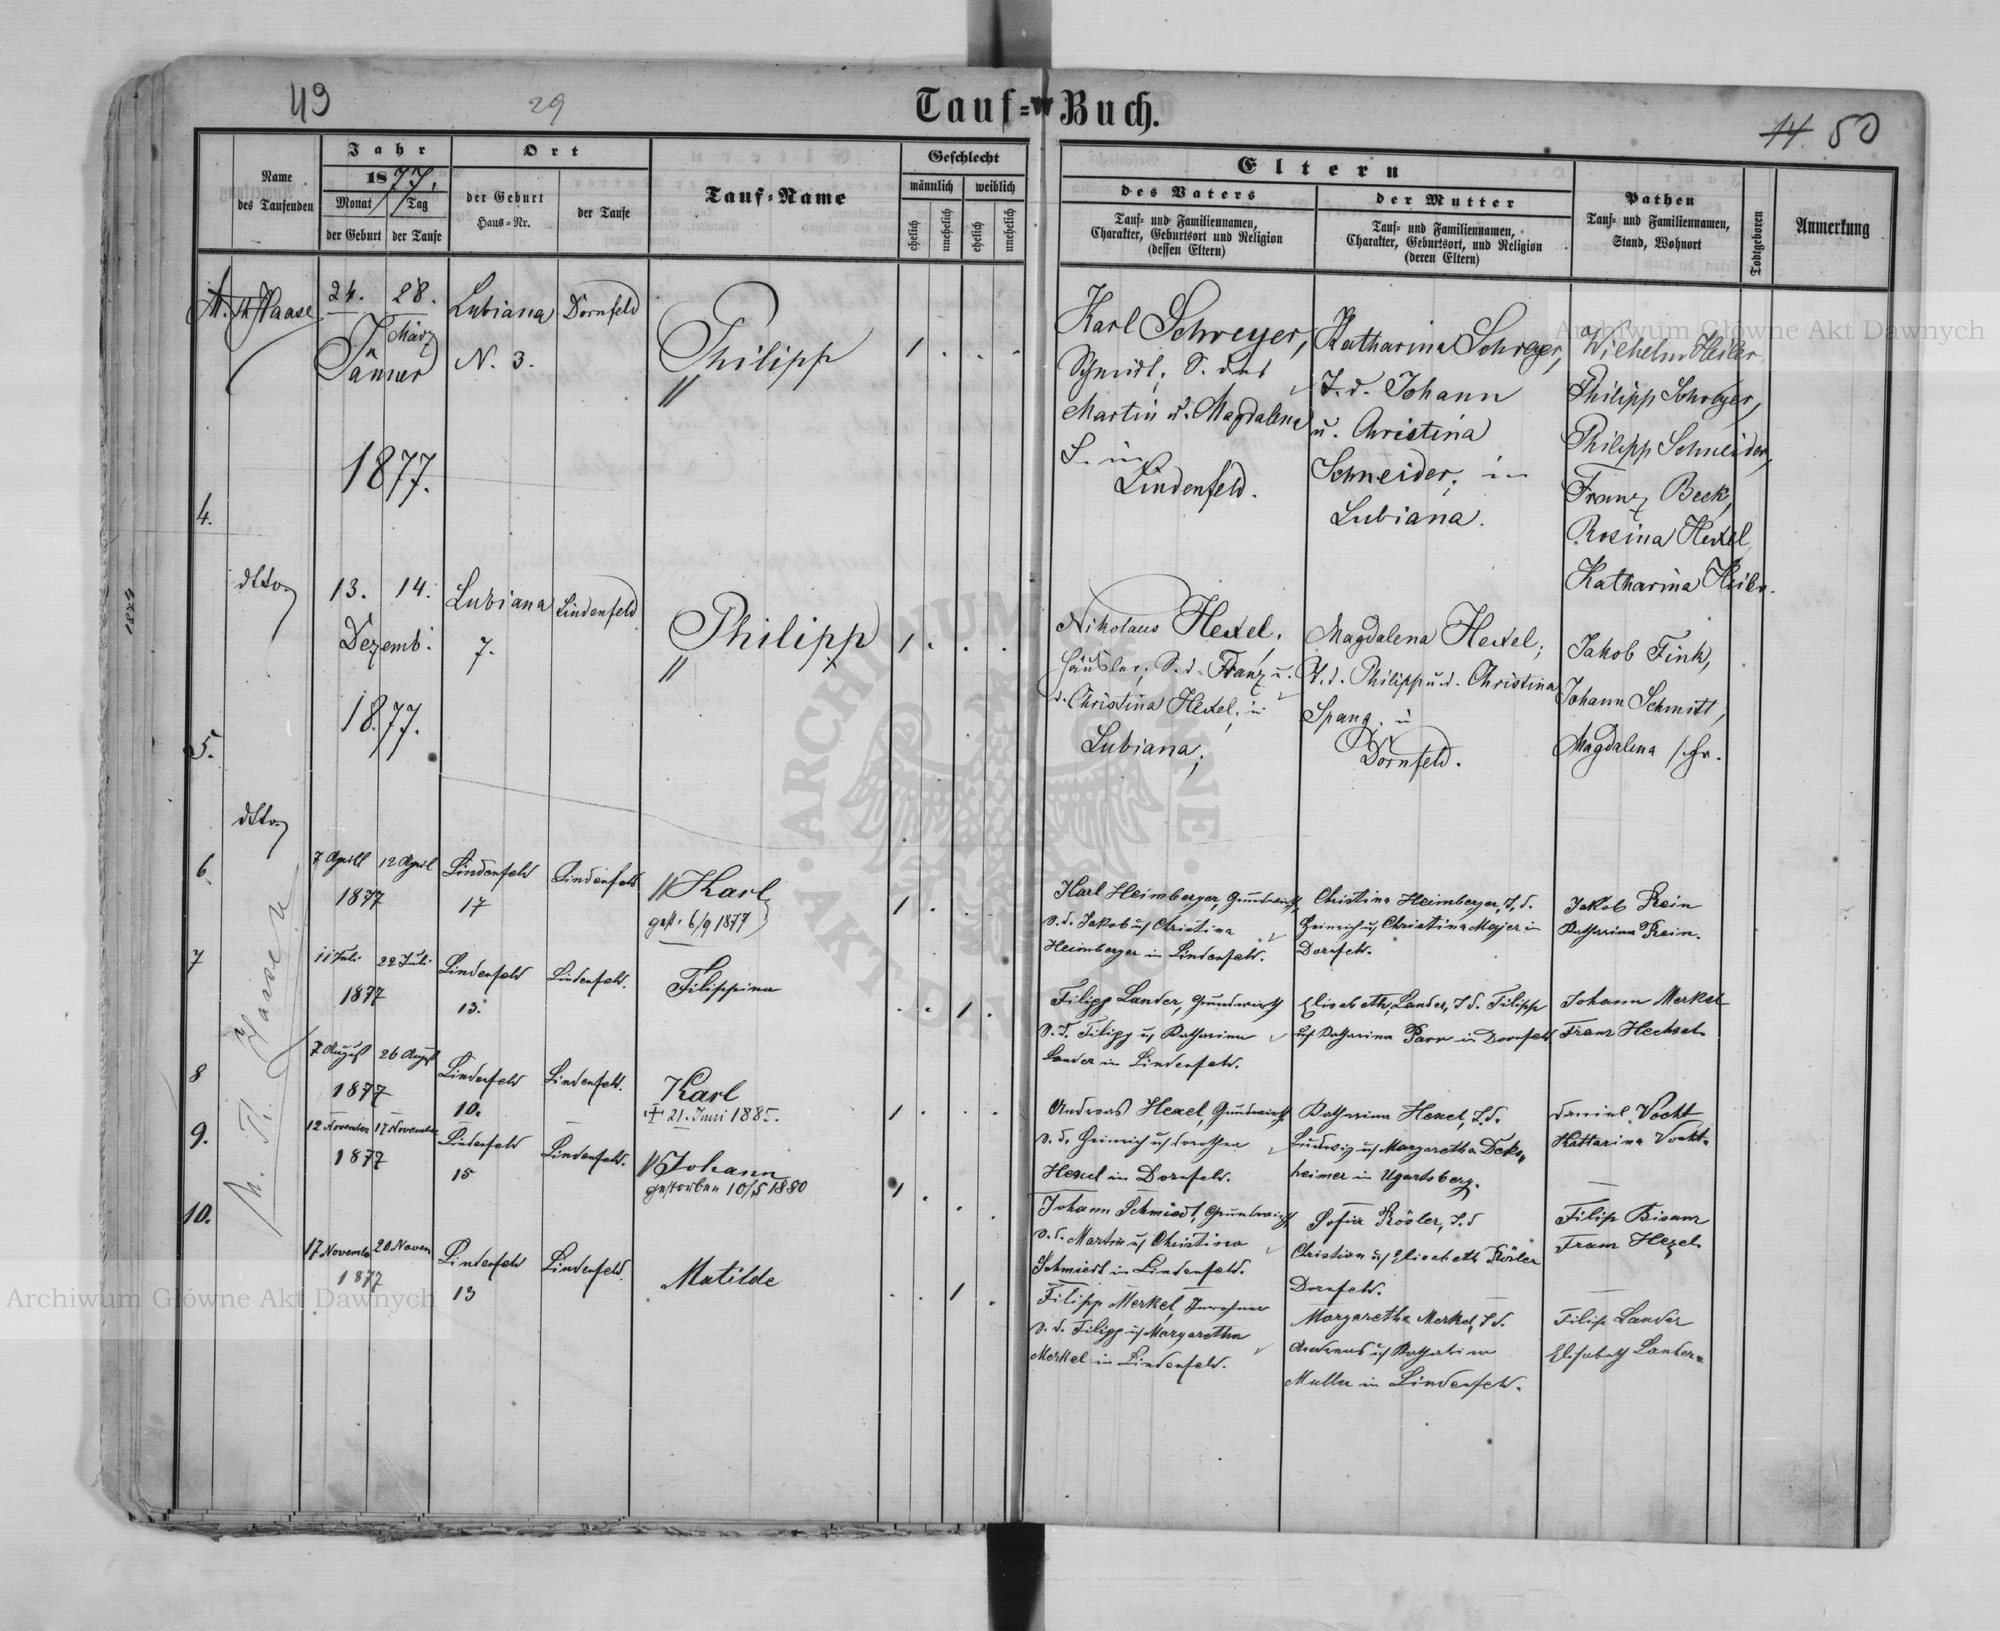 49
29
Tauf=Buch.
14. 50
Name
des Taufenden
Jahr
1877,
Monat
Tag
der Geburt
der Taufe
Ort
der Geburt
Haus=Nr.
der Taufe
Tauf=Name
Geschlecht
männlich
weiblich
ehelich
unehelich
ehelich
unehelich
Eltern
des Vaters
Tauf= und Familiennamen,
Charakter, Geburtsort und Religion
(dessen Eltern)
der Mutter
Tauf= und Familiennamen,
Charakter, Geburtsort, und Religion
(deren Eltern)
Pathen
Tauf= und Familiennamen,
Stand, Wohnort
Todtgeboren
Anmerkung
4.
Haase
24. 28.
März
Jänner
1877.
Lubiana
N. 3.
Dornfeld
Philipp
1
Karl Schreyer,
Schmidt, S. des
Martin u. Magdalena
S. in
Lindenfeld.
Katharina Schreyer,
T. d. Johann
u. Christina
Schneider, in
Lubiana.
Wilhelm Heiler
Philipp Schreyer,
Philipp Schneider,
Franz Beck,
Rosina Hexel
Katharina
5.
dtto
13. 14.
Dezemb.
1877.
Lubiana
7.
Lindenfeld
Philipp
1
Nikolaus Hexel,
Häusler, S. d. Franz u.
d. Christina Hexel, in
Lubiana;
Magdalena Hexel;
T. d. Philipp u. d. Christina
Spang. in
Dornfeld.
Jakob Fink,
Johann Schmitt,
Magdalena
6.
dtto
7 Aprill 12 April
1877
Lindenfeld
17
Lindenfeld
Karl
gest. 6/9 1877
1
Karl Heimberger, Grundwirth,
S. d. Jakob u Christina
Heimberger in Lindenfeld.
Christina Heimberger, T. d.
Heinrich u Christina Majer in
Dornfeld.
Jakob Rein
Katharina Rein.
7
11 Juli 22 Juli
1877
Lindenfeld
13.
Lindenfeld.
Filippina
1
Filipp Lander, Grundwirth
S. d. Filipp u Katharina
Lander in Lindenfeld.
Elisabeth Lander, T. d. Filipp
u Katharina Parr in Dornfeld
Johann Merkel
Franz Hechsel
8
7 August 26 August
1877
Lindenfeld
10.
Lindenfeld.
Karl
+ 21. Juni 1885.
1
Andreas Hexel, Grundwirth
S. d. Heinrich u Dorothea
Hexel in Dornfeld.
Katharina Hexel, T. d.
Ludwig u Margaretha Deks=
heimer in Ugartsberg.
Daniel Vocht
Kattarina Vocht.
9.
M. Th. Haase
12 November 17 November
1877
Lindenfeld
15
Lindenfeld.
Johann
gestorben 10/5 1880
1
Johann Schmiedt, Grundwirth
S. d. Martin u Christina
Schmiedt in Lindenfeld.
Sofia Rösler, T. d
Christian u Elisabeth Rösler
Dornfeld.
Filip Bisanz
Franz Hexel
10.
17 Novemb 20 Novem
1877
Lindenfeld
13
Lindenfeld.
Matilde
1
Filipp Merkel,
S. d. Filipp u Margaretha
Merkel in Lindenfeld.
Margaretha Merkel, T. d.
Andreas u Katharina
Muller in Lindenfeld.
Filip Lander
Elisabeth Lander.
Archiwum Główne Akt Dawnych
Archiwum Główne Akt Dawnych
ARCHIWUM GŁÓWNE AKT DAWNYCH